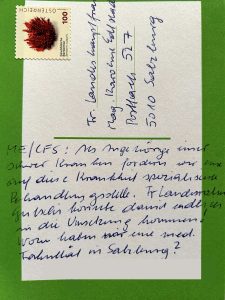 ÖSTERREICH
100
Fr. Landeshauptfrau
Mag. Karoline Edtstadler
Postfach 527
5010 Salzburg
ME/CFS: Als Angehörige einer
schwer Kranken fordern wir eine
auf diese Krankheit spezialisierte
Behandlungsstelle. Fr Landesrätin
könnte damit endlich
in die Umsetzung kommen!
Wozu haben wir eine med.
Fakultät in Salzburg?